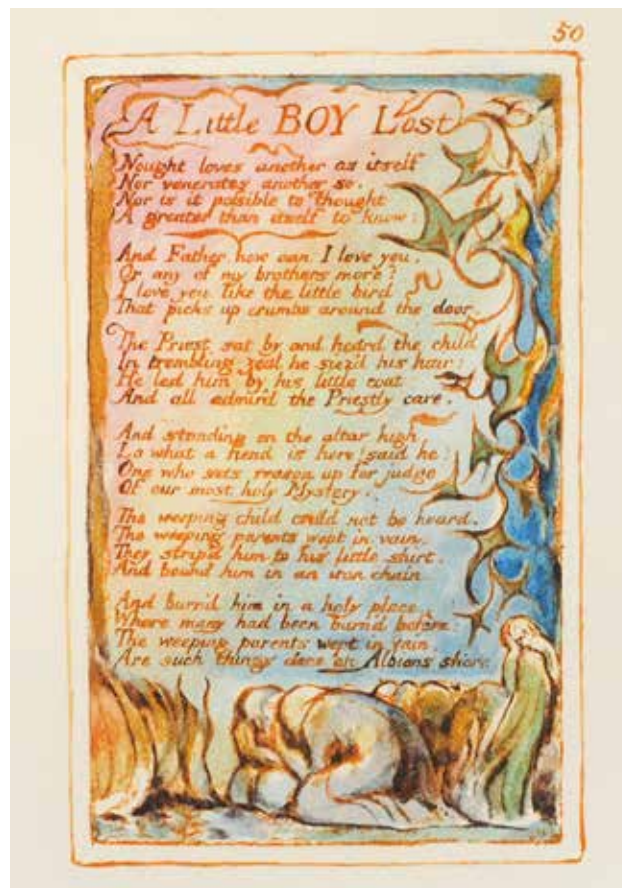 50
A Little BOY Lost
Nought loves another as itself
Nor venerates another so.
Nor is it possible to Thought
A greater than itself to know:
And Father, how can I love you,
Or any of my brothers more?
I love you like the little bird
That picks up crumbs around the door.
The Priest sat by and heard the child.
In trembling zeal he siez'd his hair:
He led him by his little coat:
And all admir'd the Priestly care.
And standing on the altar high,
Lo what a fiend is here! said he:
One who sets reason up for judge
Of our most holy Mystery.
The weeping child could not be heard.
The weeping parents wept in vain:
They strip'd him to his little shirt.
And bound him in an iron chain.
And burn'd him in a holy place,
Where many had been burn'd before:
The weeping parents wept in vain.
Are such things done on Albions shore.